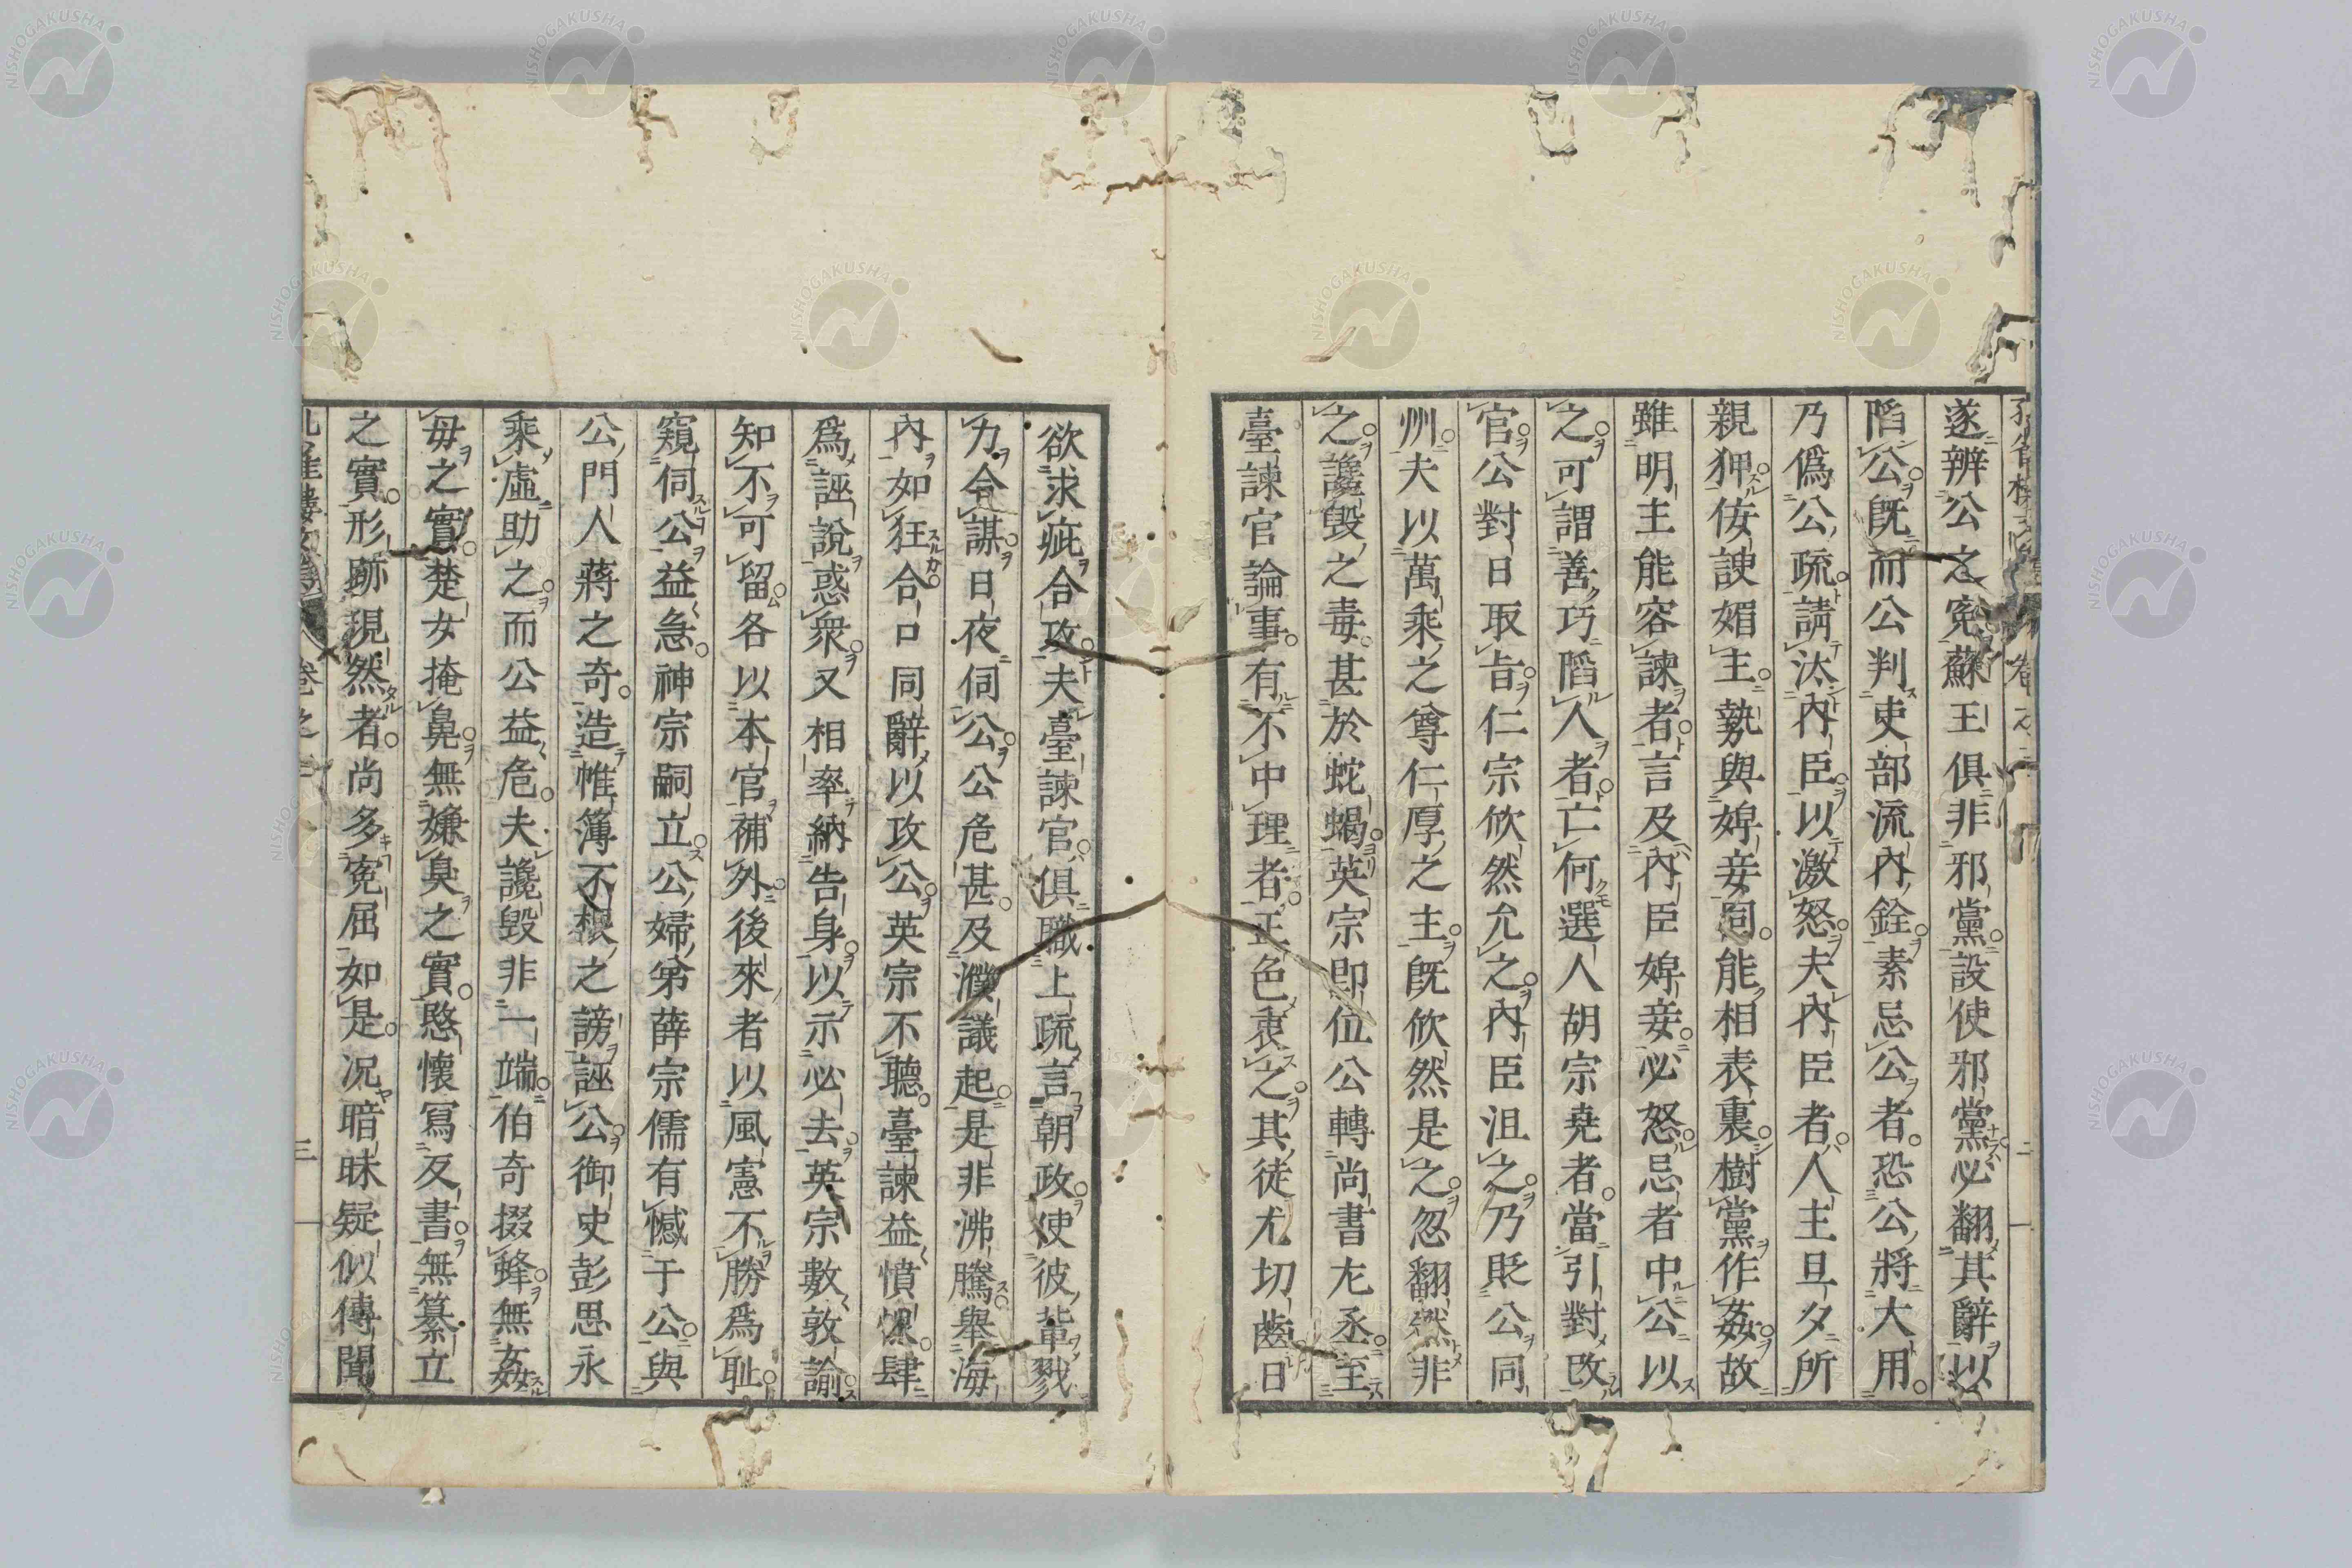 遂辨公之冤蘇王俱非邪黨設使邪黨必翻其辭以
陷公既而公判吏部流內銓素忌公者恐公將大用
乃僞公疏請汰內臣以激怒夫內臣者人主旦夕所
親狎佞諛媚主執與婢妾同能相表裏樹黨作姦故
雖明主能容諫者言及內臣婢妾必怒忌者中公以
之可謂善巧陷人者亡何選人胡宗堯者當引對改
官公對曰取旨仁宗欣然允之內臣沮之乃貶公同
州夫以萬乘之尊仁厚之主既欣然是之忽翻然非
之讒毀之毒甚於蛇蝎英宗即位公轉尚書左丞至
臺諫官論事有不中理者正色衷之其徒尤切齒日
欲求疵合攻夫臺諫官俱職上疏言朝政使彼輩戮
力合謀日夜伺公公危甚及濮議起是非沸騰舉海
內如狂合口同辭以攻公英宗不聽臺諫益憤懣肆
爲誣說惑衆又相率納告身以示必去英宗數敦諭
知不可留各以本官補外後來者以風憲不勝爲恥
窺伺公益急神宗嗣立公婦弟薛宗儒有憾于公與
公門人蔣之奇造帷簿不根之謗誣公御史彭思永
乘虛助之而公益危夫讒毀非一端伯奇掇蜂無姦
母之實楚女掩鼻無嫌臭之實愍懷寫反書無纂立
之實形跡現然者尚多冤屈如是况暗昧疑似傳聞
卷之
三